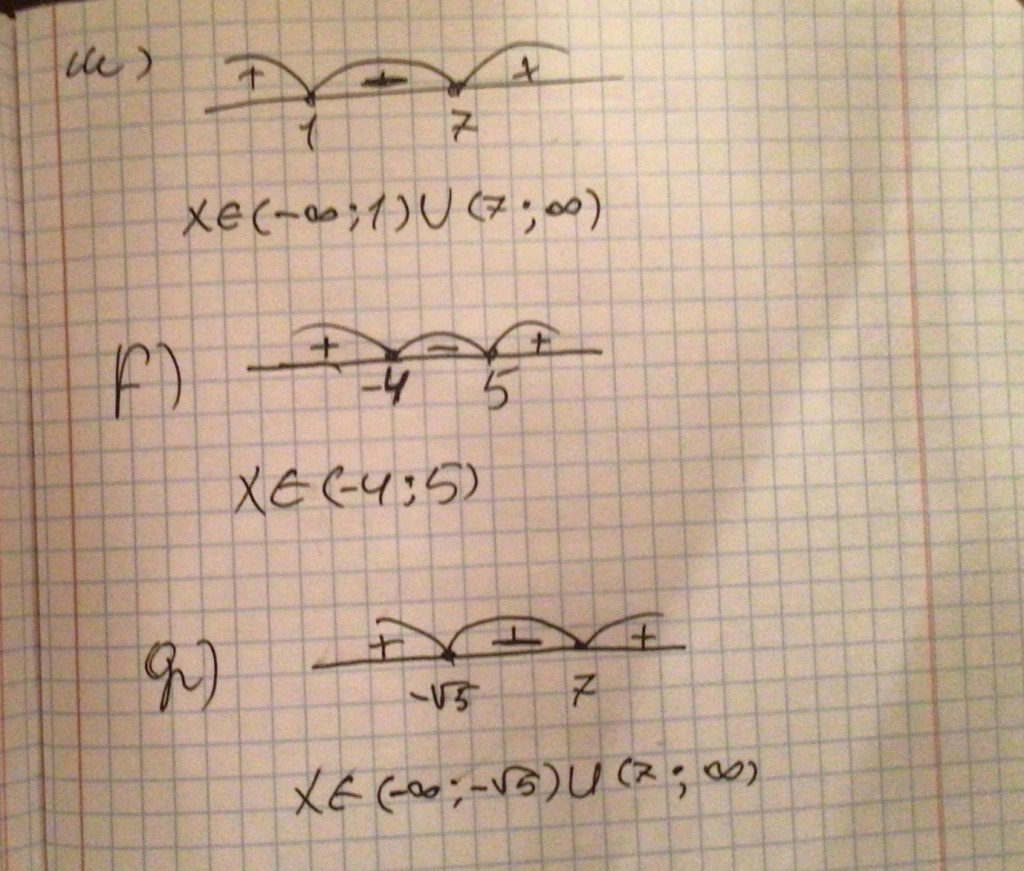 + - +
1 7
x∈(-∞;1)∪(7;∞)
+ - +
-4 5
x∈(-4;5)
+ - +
-√5 7
x∈(-∞;-√5)∪(7;∞)